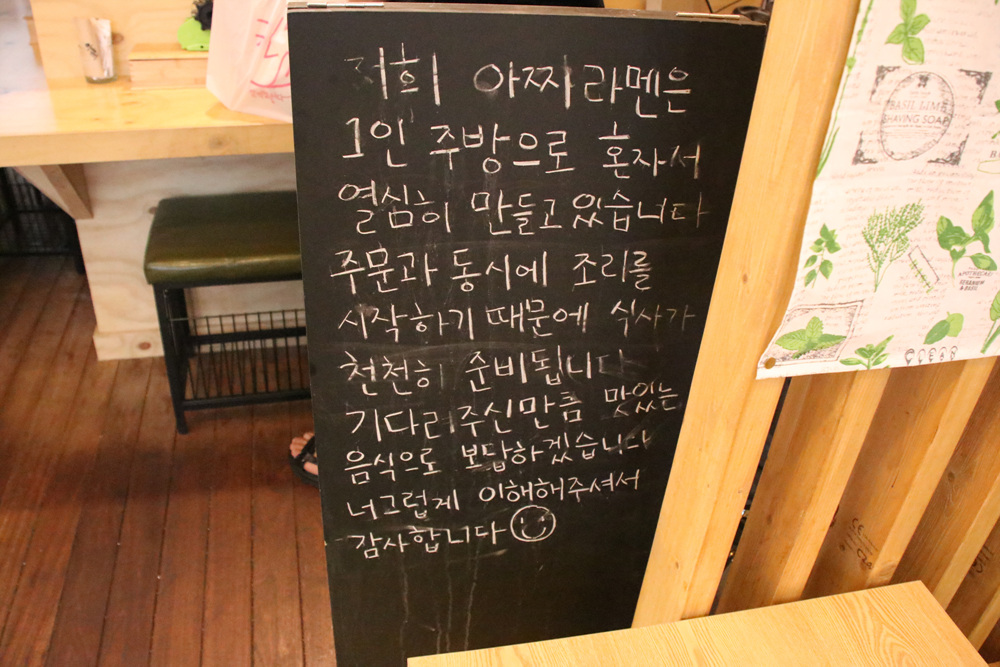 저희 아찌라멘은
1인 주방으로 혼자서
열심히 만들고있습니다
주문과 동시에 조리를
시작하기 때문에 식사가
천천히 준비됩니다
기다려주신만큼 맛있는
음식으로 보답하겠습니다
너그럽게 이해해주셔서
감사합니다
BASIL LIME
SHAVING SOAP